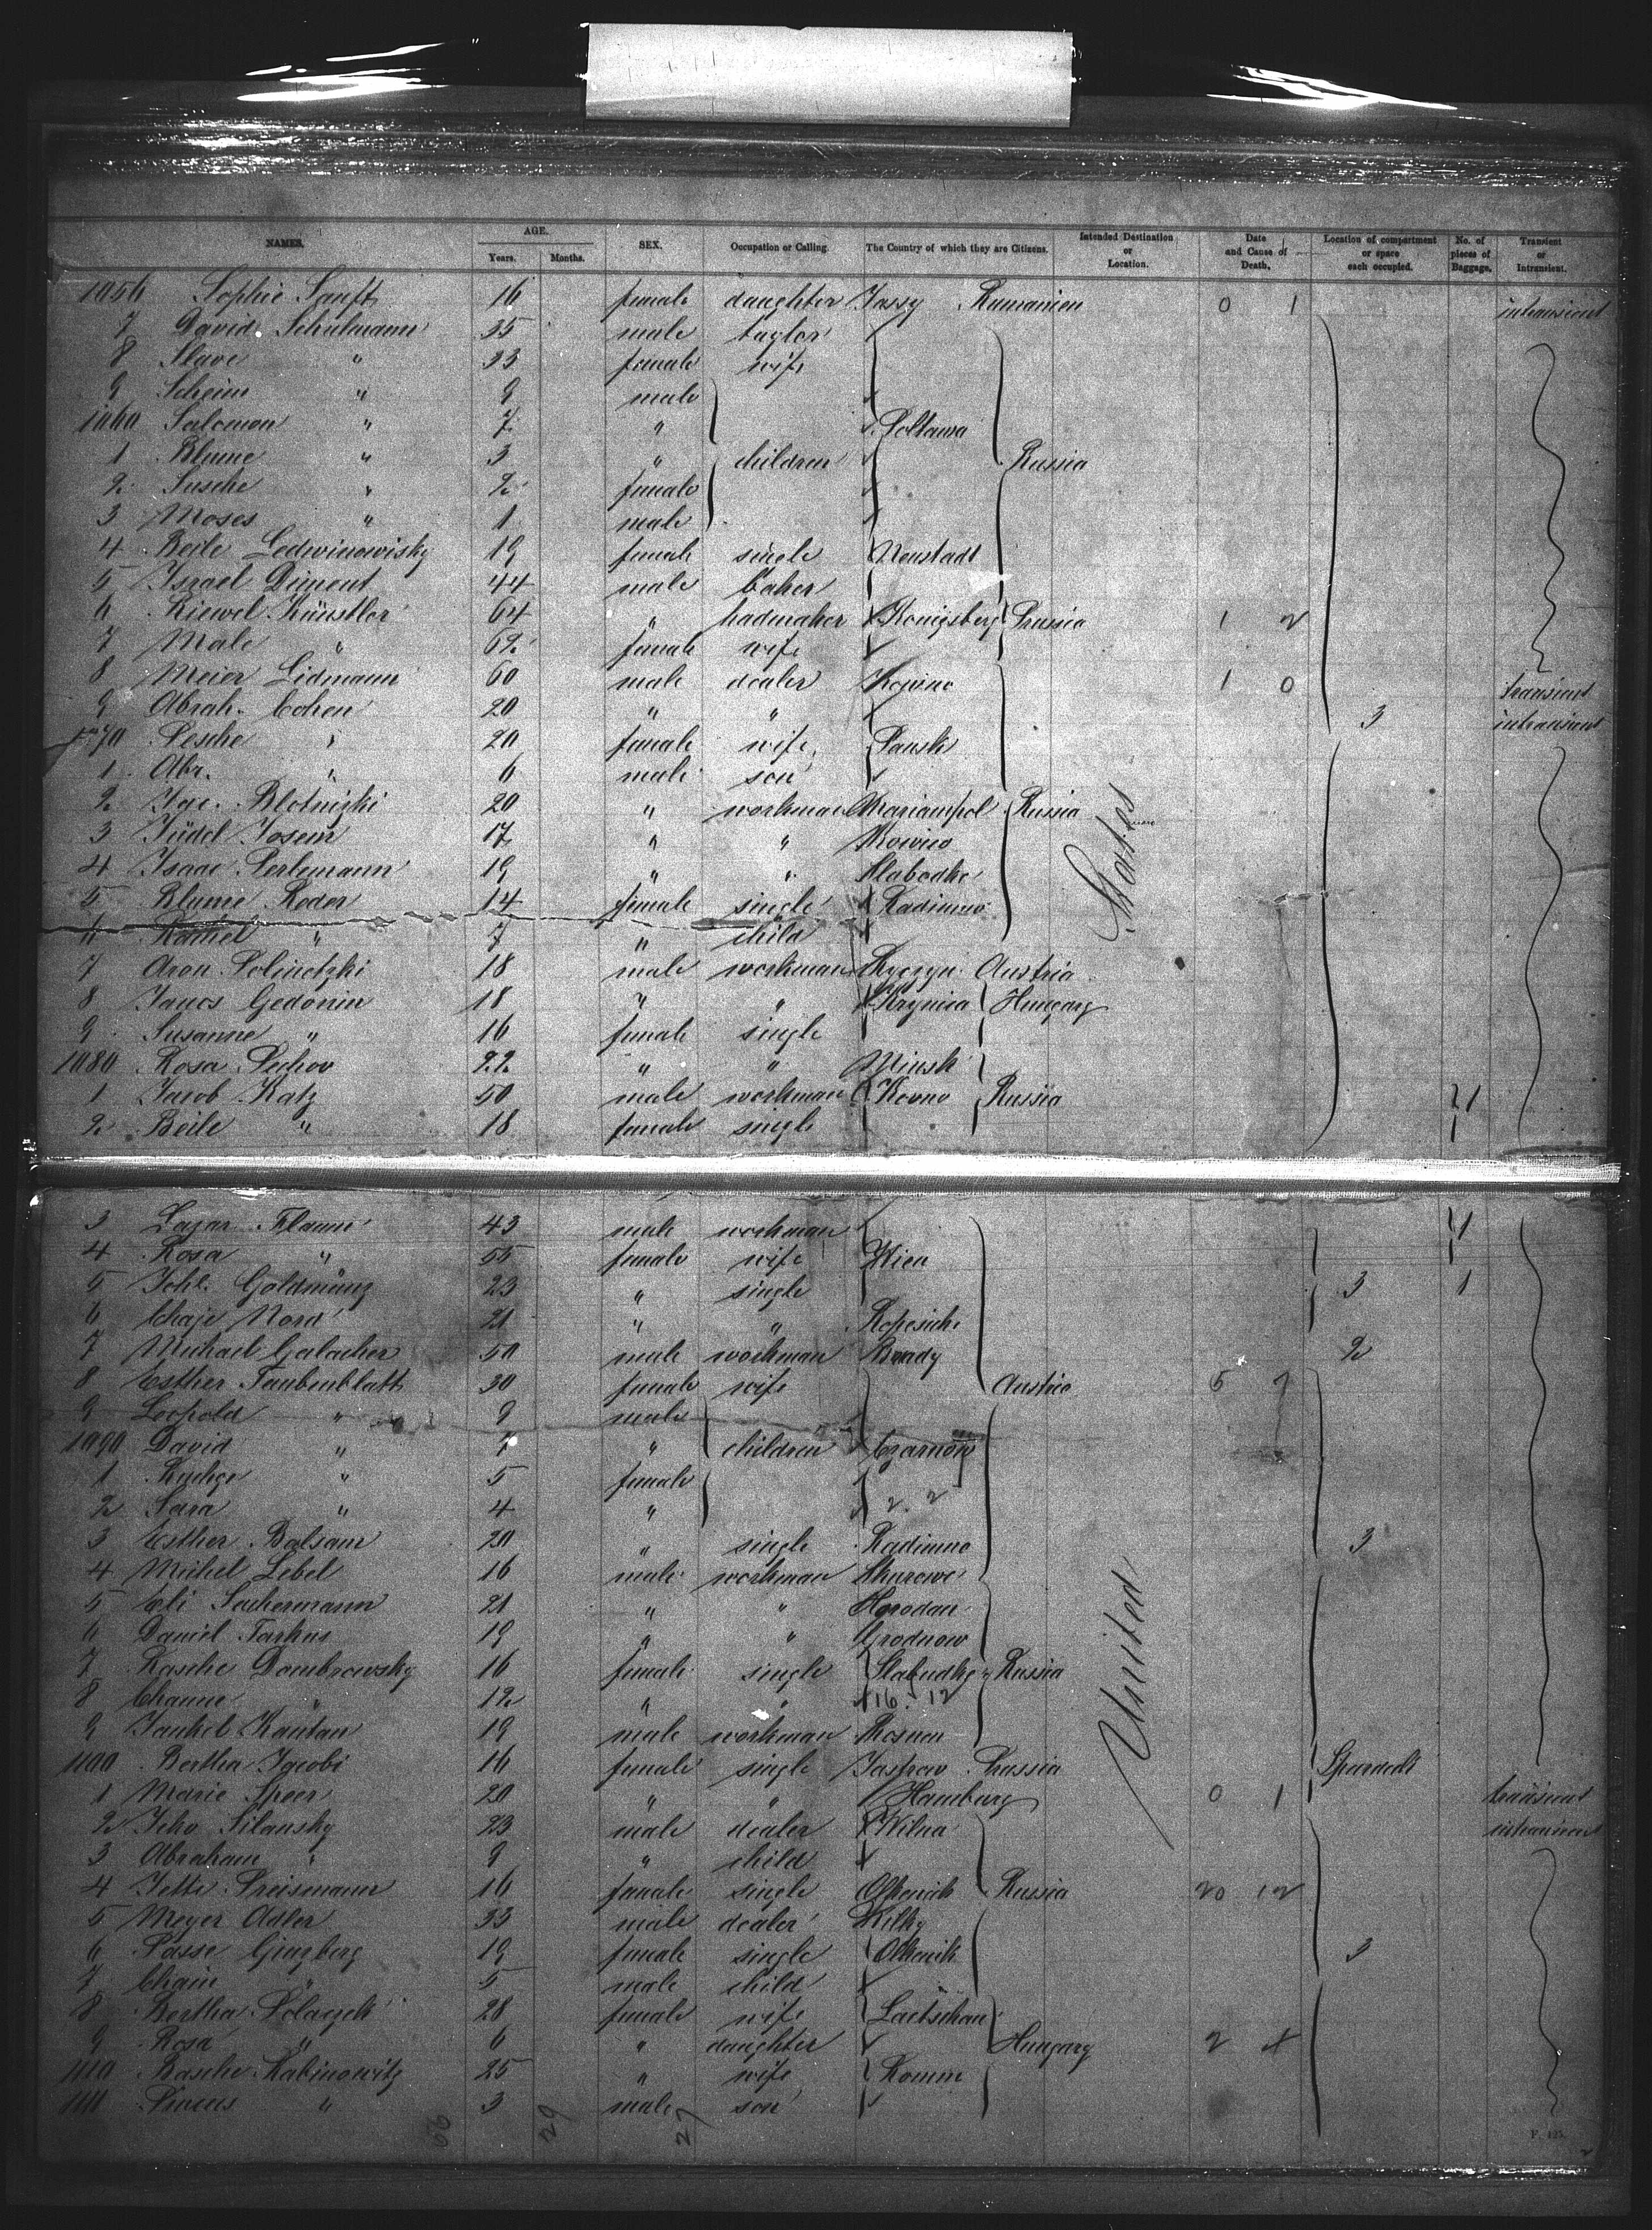 NAMES. AGE. Years. Months. SEX. Occupation or Calling. The Country of which they are Citizens. Intended Destination or Location. Date and Cause of Death. Location of compartment or space each occupied. No. of pieces of Baggage. Transient or Intransient.
1056 Sophie Sanft 16 female daughter Jassy Rumanien 0 1 intransient
7 David Schulmann 35 male taylor
8 Slave " 33 female wife
9 Scheim " 9 male
1060 Salomon " 7 " Poltawa
1 Blume " 3 " children Russia
2 Susche " 2 female
3 Moses " 1 male
4 Beile Ledwinowisky 19 female single Neustadt
5 Israel Diment 44 male baker
6 Kiewel Künstler 64 " hadmaker Konigsberg Prussia 1 2
7 Male " 62 female wife
8 Meier Lidmann 60 male dealer Kowno 1 0 transient
9 Abrah. Cohen 20 " " 3 intransient
1070 Pesche " 20 female wife Pansk
1 Abr. " 6 male son
2 Isac. Blotnizki 20 " workman Mariampol Russia
3 Jüdel Josem 17 " " Kowno
4 Isaac Perlemann 19 " " Slabodke
5 Blume Roder 14 female single Radimno States
6 " 7 " child
7 Aron Polinetzki 18 male workman Austria
8 Gedonin 18 " " Krynica Hungary
9 Susanne " 16 female single
1080 Rosa Pechov 22 " " Minsk
1 Jacob Katz 50 male workman Kovno Russia
2 Beile " 18 female single
3 Lazar Flamm 43 male workman
4 Rosa " 55 female wife Wien
5 Goldmünz 23 " single 3 1
6 Chaje Nord 21 " "
7 Michael 50 male workman Brody 2
8 Esther Taubenblatt 30 female wife Austria 5
9 Leopold " 9 male
1090 David " 7 " children Czarnow
1 " 5 female
2 Sara " 4 " 2. 2
3 Esther Balsam 20 " single Radimno 3
4 Michel Lebel 16 male workman
5 Eli Suchermann 21 " " Horodan
6 Daniel Tarkus 19 " " Grodnow
7 Rasche Dombrowsky 16 female single Slabudke Russia United
8 Channe " 12 " " 16. 12
9 Jankel Kantan 19 male workman
1100 Bertha Jacobi 16 female single Jastrow Prussia
1 Marie Speer 20 " " Hamburg 0 1 transient
2 Silansky 23 male dealer Wilna intransient
3 Abraham " 9 " child
4 Jette Preismann 16 female single Russia 20 12
5 Meyer Adler 33 male dealer
6 Passe Ginzberg 19 female single 3
7 Chain " 5 male child
8 Bertha Polaczek 28 female wife
9 Rosa " 6 " daughter Hungary 2
1110 Basche Rabinowitz 25 " wife
1111 " 3 male son
66 29 27